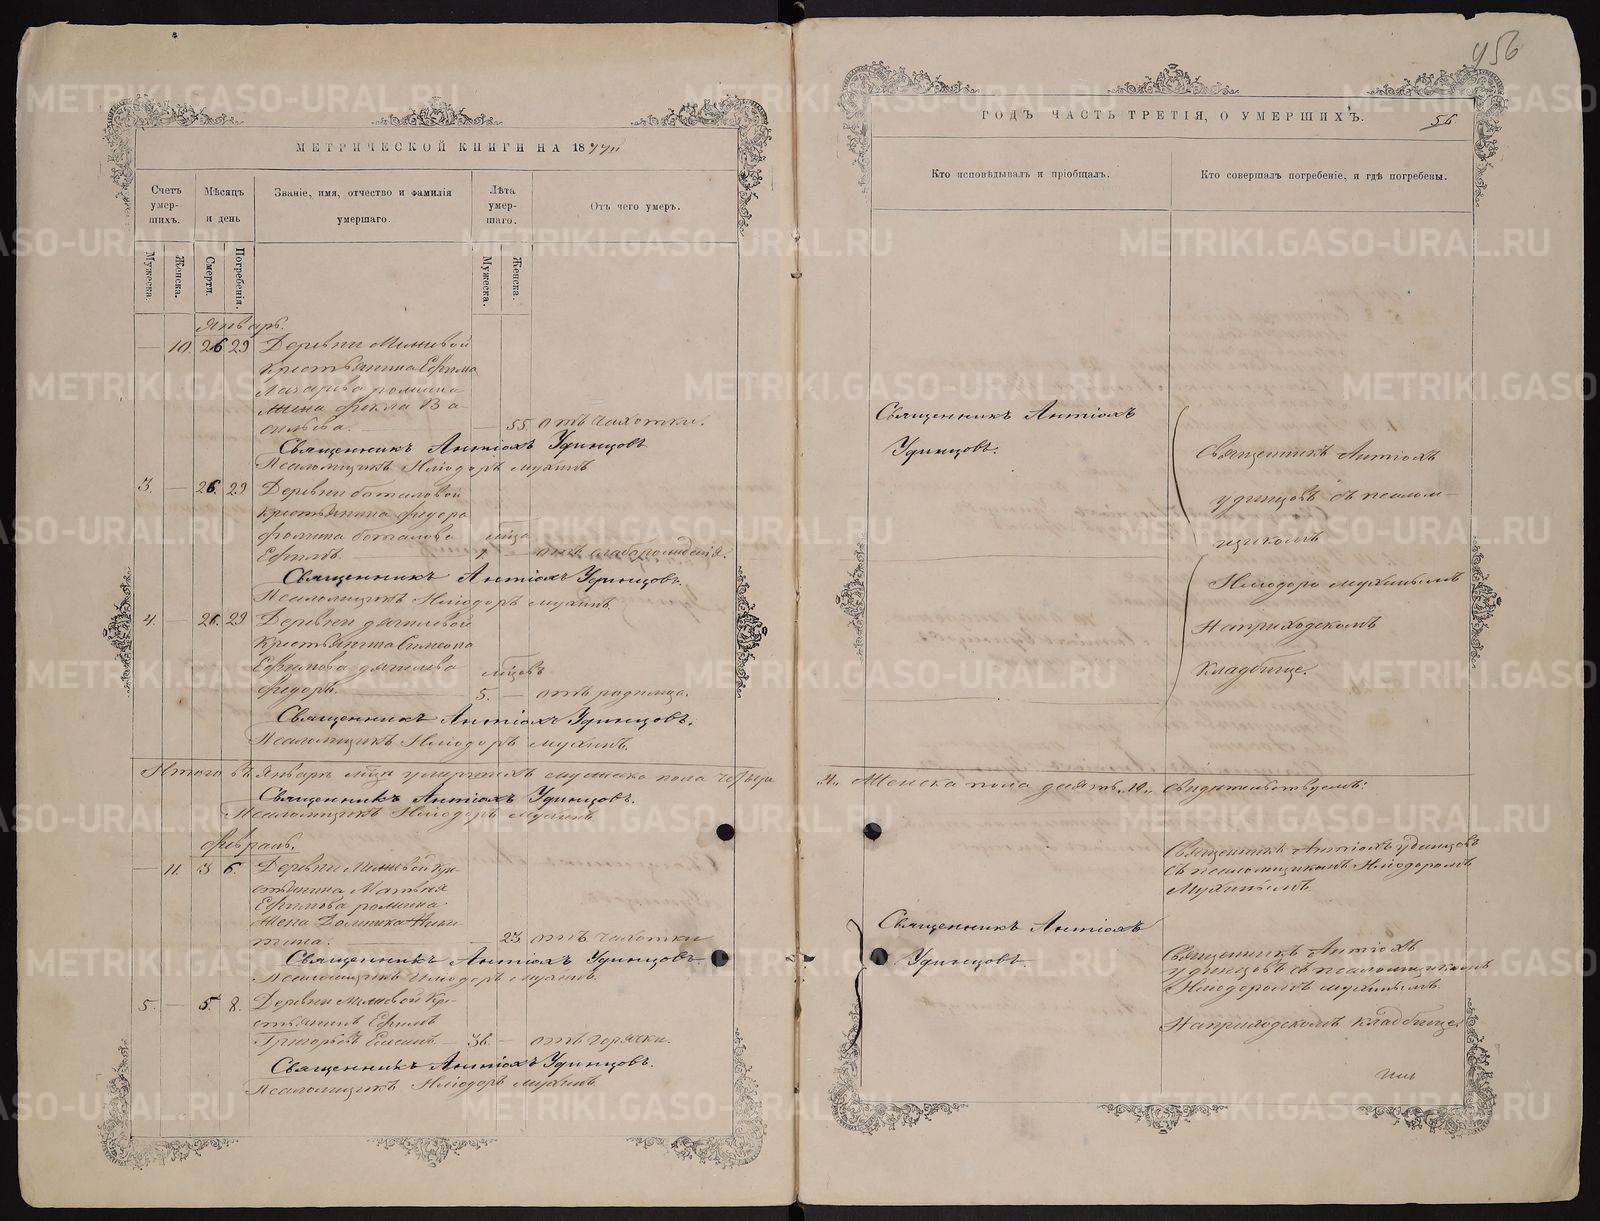 МЕТРИЧЕСКОЙ КНИГИ НА 1877й
Счетъ умер-шихъ.
Мѣсяцъ и день
Званіе, имя, отчество и фамилія умершаго.
Лѣта умер-шаго.
Отъ чего умеръ.
Мужеска.
Женска.
Смерти.
Погребенія.
Мужеска.
Женска.
Январь.
— 10 26 29 Деревни
крестьянина Ефима
Лазарева
жена Фекла Ва-
сильева. — 55. отъ чахотки.
Священникъ Антіохъ Удинцовъ
Псаломщикъ Иліодоръ Мухинъ
3. — 26. 29 Деревни Боталовой
крестьянина Федора
Фомина Боталова
Ефимъ 1. отъ слабаго
Священникъ Антіохъ Удинцовъ.
Псаломщикъ Иліодоръ Мухинъ.
4. — 26. 29 Деревни
крестьянина Симеона
Ефимова
Федоръ. 5. — отъ родимца.
Священникъ Антіохъ Удинцовъ.
Псаломщикъ Иліодоръ Мухинъ.
Итого въ Январѣ м-цѣ умершихъ мужеска пола четыре
Священникъ Антіохъ Удинцовъ.
Псаломщикъ Иліодоръ Мухинъ
Февраль.
— 11. 3 6. Деревни кре-
стьянина Матвея
Ефимова
жена Домника Ники-
тина. — 23 отъ чахотки
Священникъ Антіохъ Удинцовъ
Псаломщикъ Иліодоръ Мухинъ.
5. — 5. 8. Деревни кре-
стьянинъ Ефимъ
Григорьевъ 36. — отъ горячки.
Священникъ Антіохъ Удинцовъ.
Псаломщикъ Иліодоръ Мухинъ
456
ГОДЪ ЧАСТЬ ТРЕТІЯ, О УМЕРШИХЪ.
56
Кто исповѣдывалъ и пріобщалъ.
Кто совершалъ погребеніе, и гдѣ погребены.
Священникъ Антіохъ
Удинцовъ.
Священникъ Антіохъ
Удинцовъ съ псалом-
щикомъ
Иліодоромъ Мухинымъ
На приходскомъ
кладбище.
„4„ Женска пола десять „10„ свидетельствуемъ:
Священникъ Антіохъ Удинцовъ
съ псаломщикомъ Иліодоромъ
Мухинымъ
Священникъ Антіохъ
Удинцовъ.
Священникъ Антіохъ
Удинцовъ съ псаломщикомъ
Иліодоромъ Мухинымъ
На приходскомъ кладбище.
METRIKI.GASO-URAL.RU